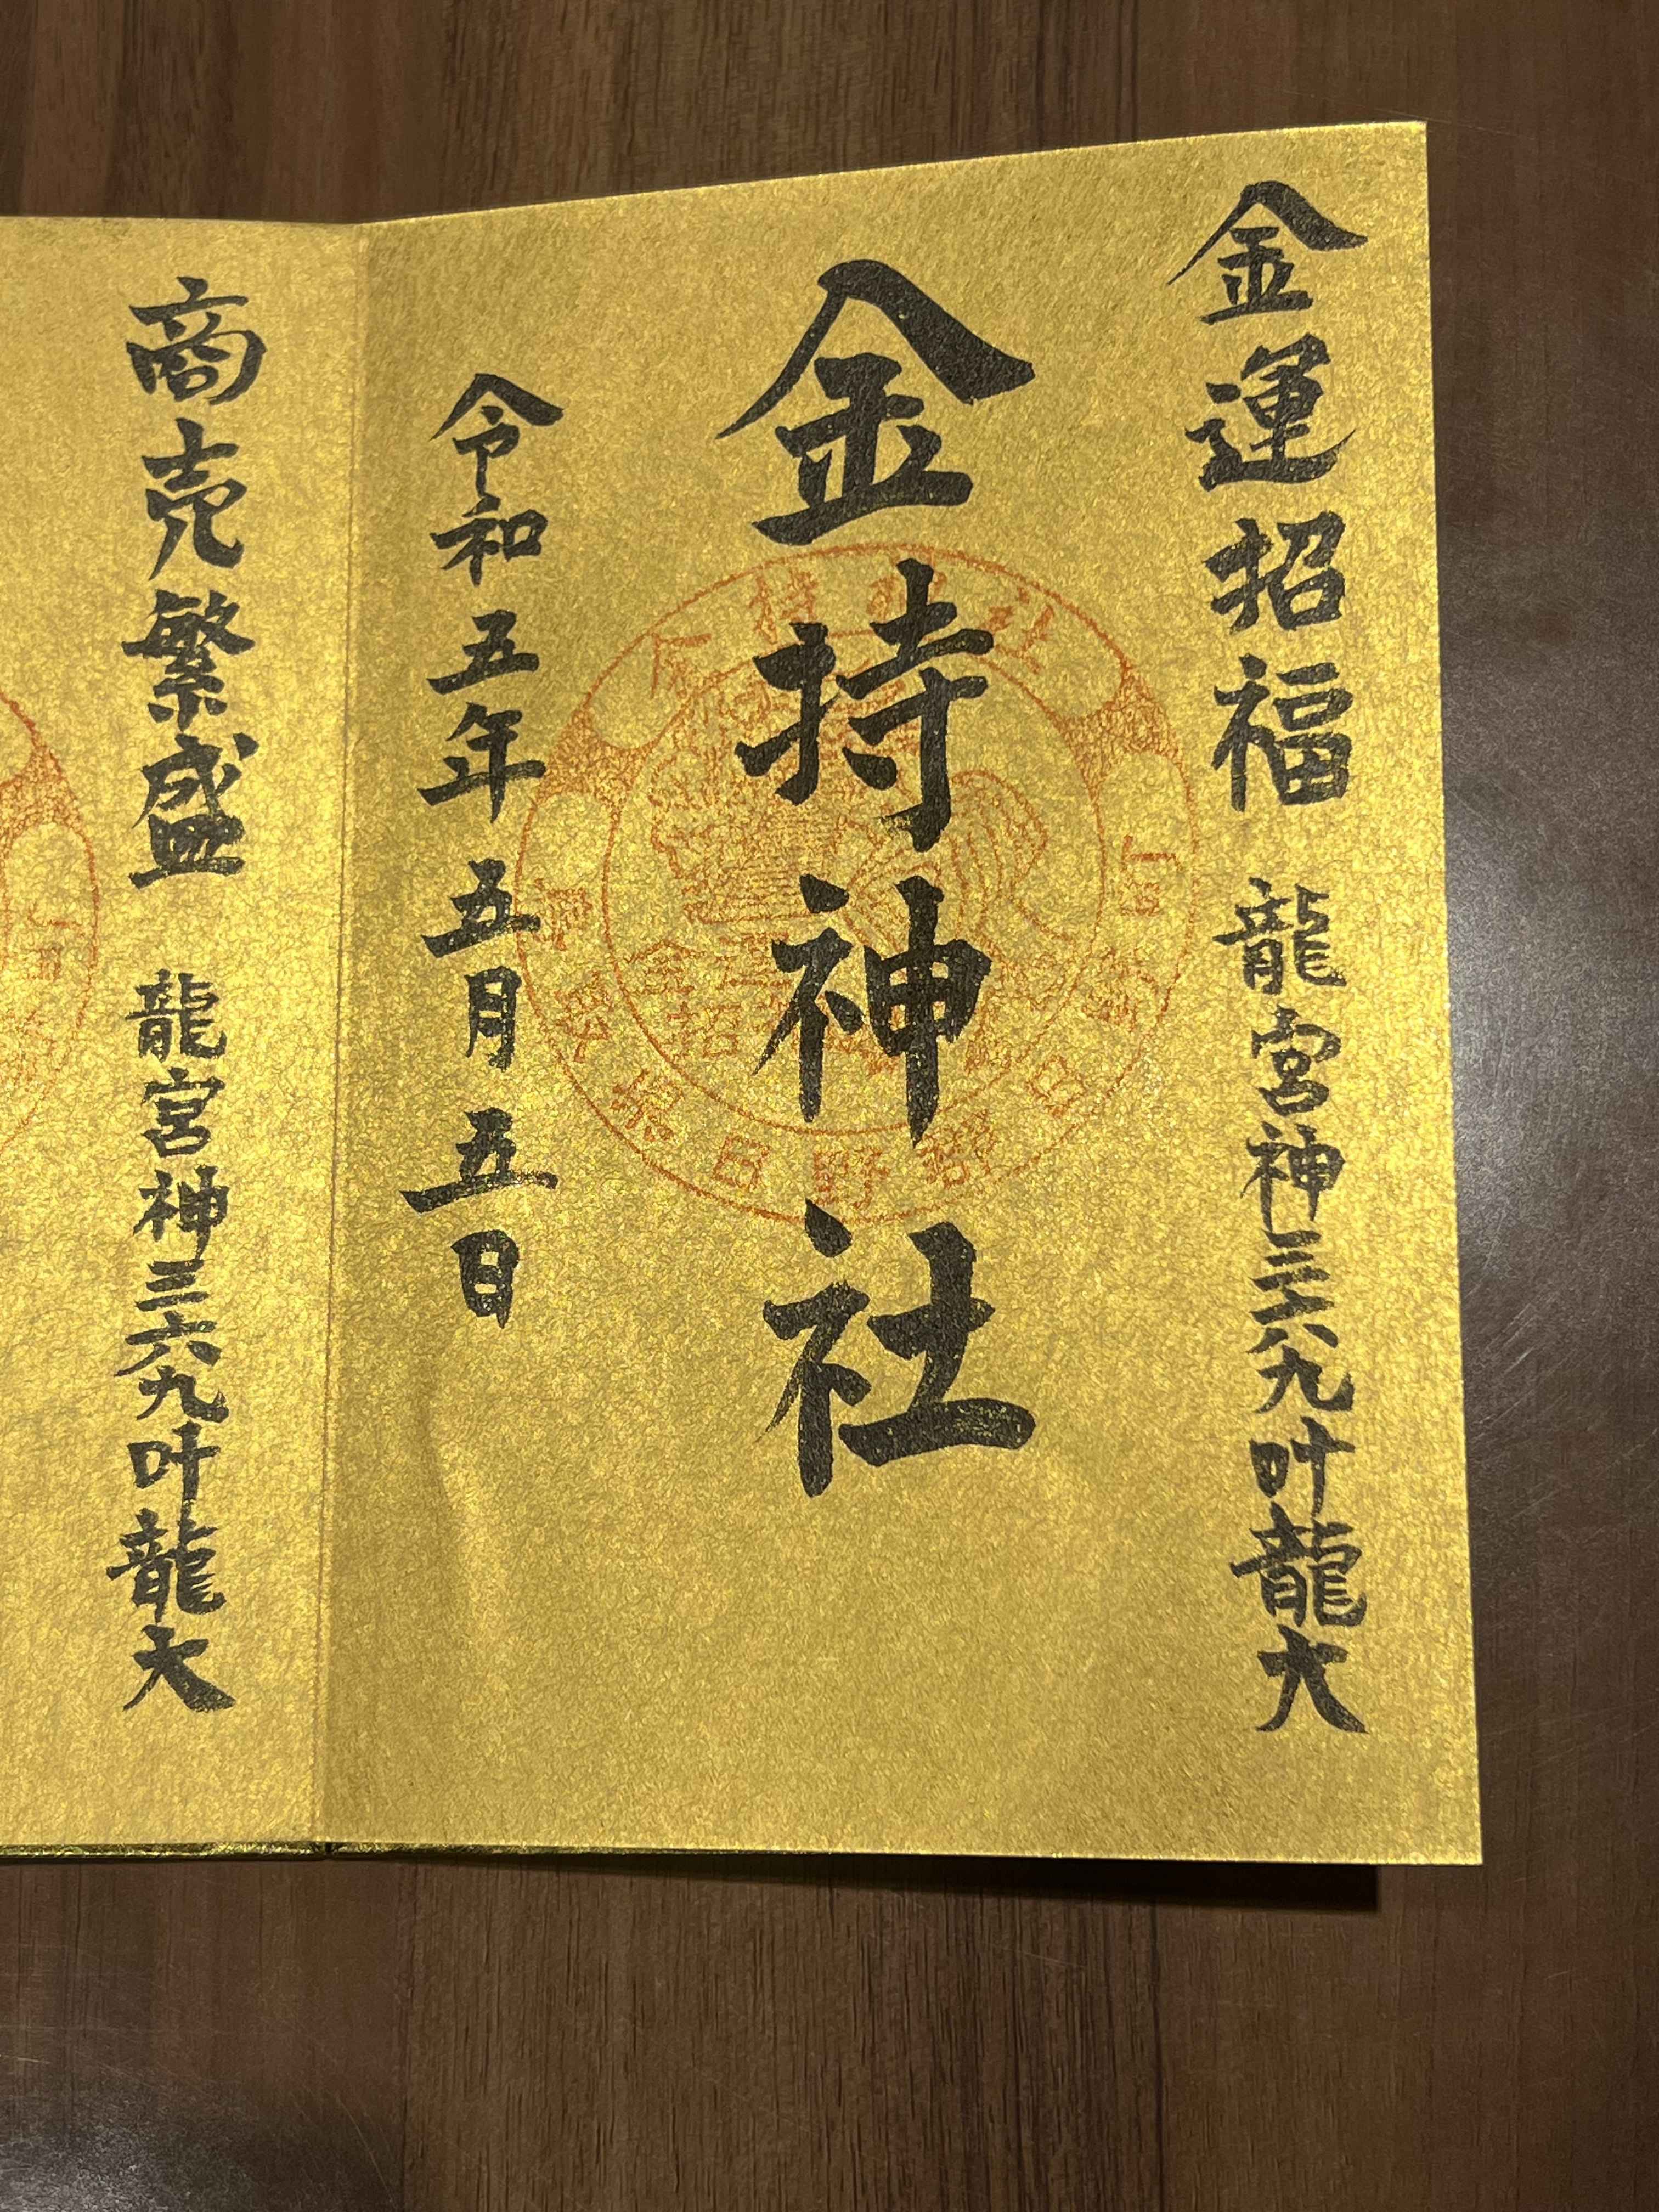 金運招福 龍宮神三六九叶龍大
金持神社
令和五年五月五日
商売繁盛 龍宮神三六九叶龍大